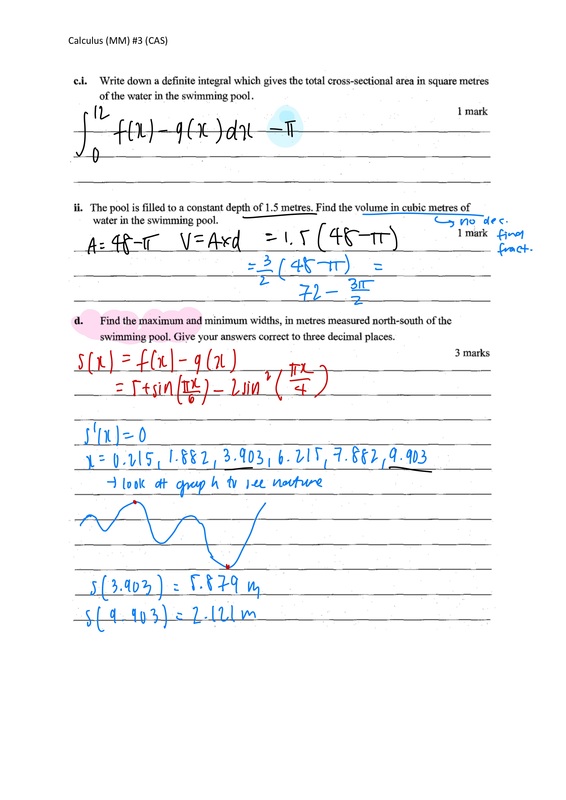 Calculus (MM) #3 (CAS)
c.i. Write down a definite integral which gives the total cross-sectional area in square metres
of the water in the swimming pool.
1 mark
∫₀¹² f(x) - g(x) dx - π
ii. The pool is filled to a constant depth of 1.5 metres. Find the volume in cubic metres of
water in the swimming pool.
↳ no dec.
1 mark
find fract.
A = 48-π V = A×d = 1.5 (48-π)
= 3/2 (48-π) =
72 - 3π/2
d. Find the maximum and minimum widths, in metres measured north-south of the
swimming pool. Give your answers correct to three decimal places.
3 marks
s(x) = f(x) - g(x)
= 5+sin(πx/6) - 2sin²(πx/4)
s'(x) = 0
x = 0.215, 1.882, 3.903, 6.215, 7.882, 9.903
→ look at graph to see nature
s(3.903) = 5.879 m
s(9.903) = 2.121 m